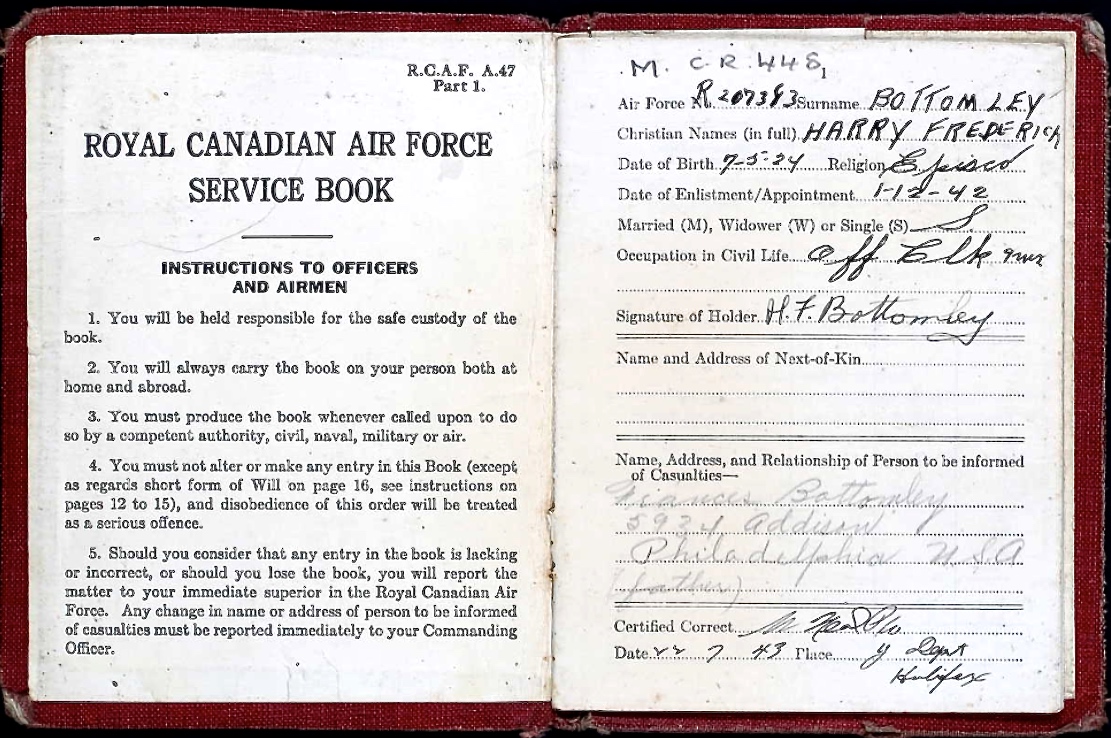 R.C.A.F. A.47
Part 1.
ROYAL CANADIAN AIR FORCE
SERVICE BOOK
INSTRUCTIONS TO OFFICERS
AND AIRMEN
1. You will be held responsible for the safe custody of the
book.
2. You will always carry the book on your person both at
home and abroad.
3. You must produce the book whenever called upon to do
so by a competent authority, civil, naval, military or air.
4. You must not alter or make any entry in this Book (except
as regards short form of Will on page 16, see instructions on
pages 12 to 15), and disobedience of this order will be treated
as a serious offence.
5. Should you consider that any entry in the book is lacking
or incorrect, or should you lose the book, you will report the
matter to your immediate superior in the Royal Canadian Air
Force. Any change in name or address of person to be informed
of casualties must be reported immediately to your Commanding
Officer.
M. C.R. 448
Air Force No. R207393 Surname BOTTOMLEY
Christian Names (in full) HARRY FREDERICK
Date of Birth 7-5-24 Religion Episco
Date of Enlistment/Appointment 1-12-42
Married (M), Widower (W) or Single (S) S
Occupation in Civil Life Off Clk
Signature of Holder H.F. Bottomley
Name and Address of Next-of-Kin
Name, Address, and Relationship of Person to be informed
of Casualties—
Frances Bottomley
5924 Addison
Philadelphia U.S.A
(father)
Certified Correct
Date 22 7 43 Place Y Dept
Halifax